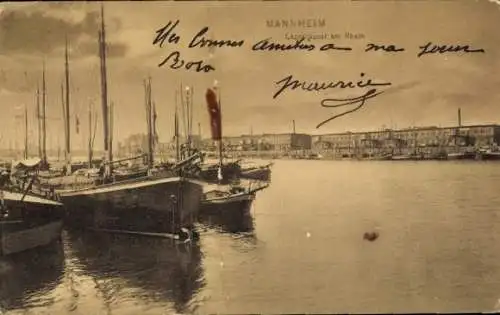 MANNHEIM
Lagerhäuser am Rhein
Mes bonnes amitiés a ma soeur
Bozo
Maurice